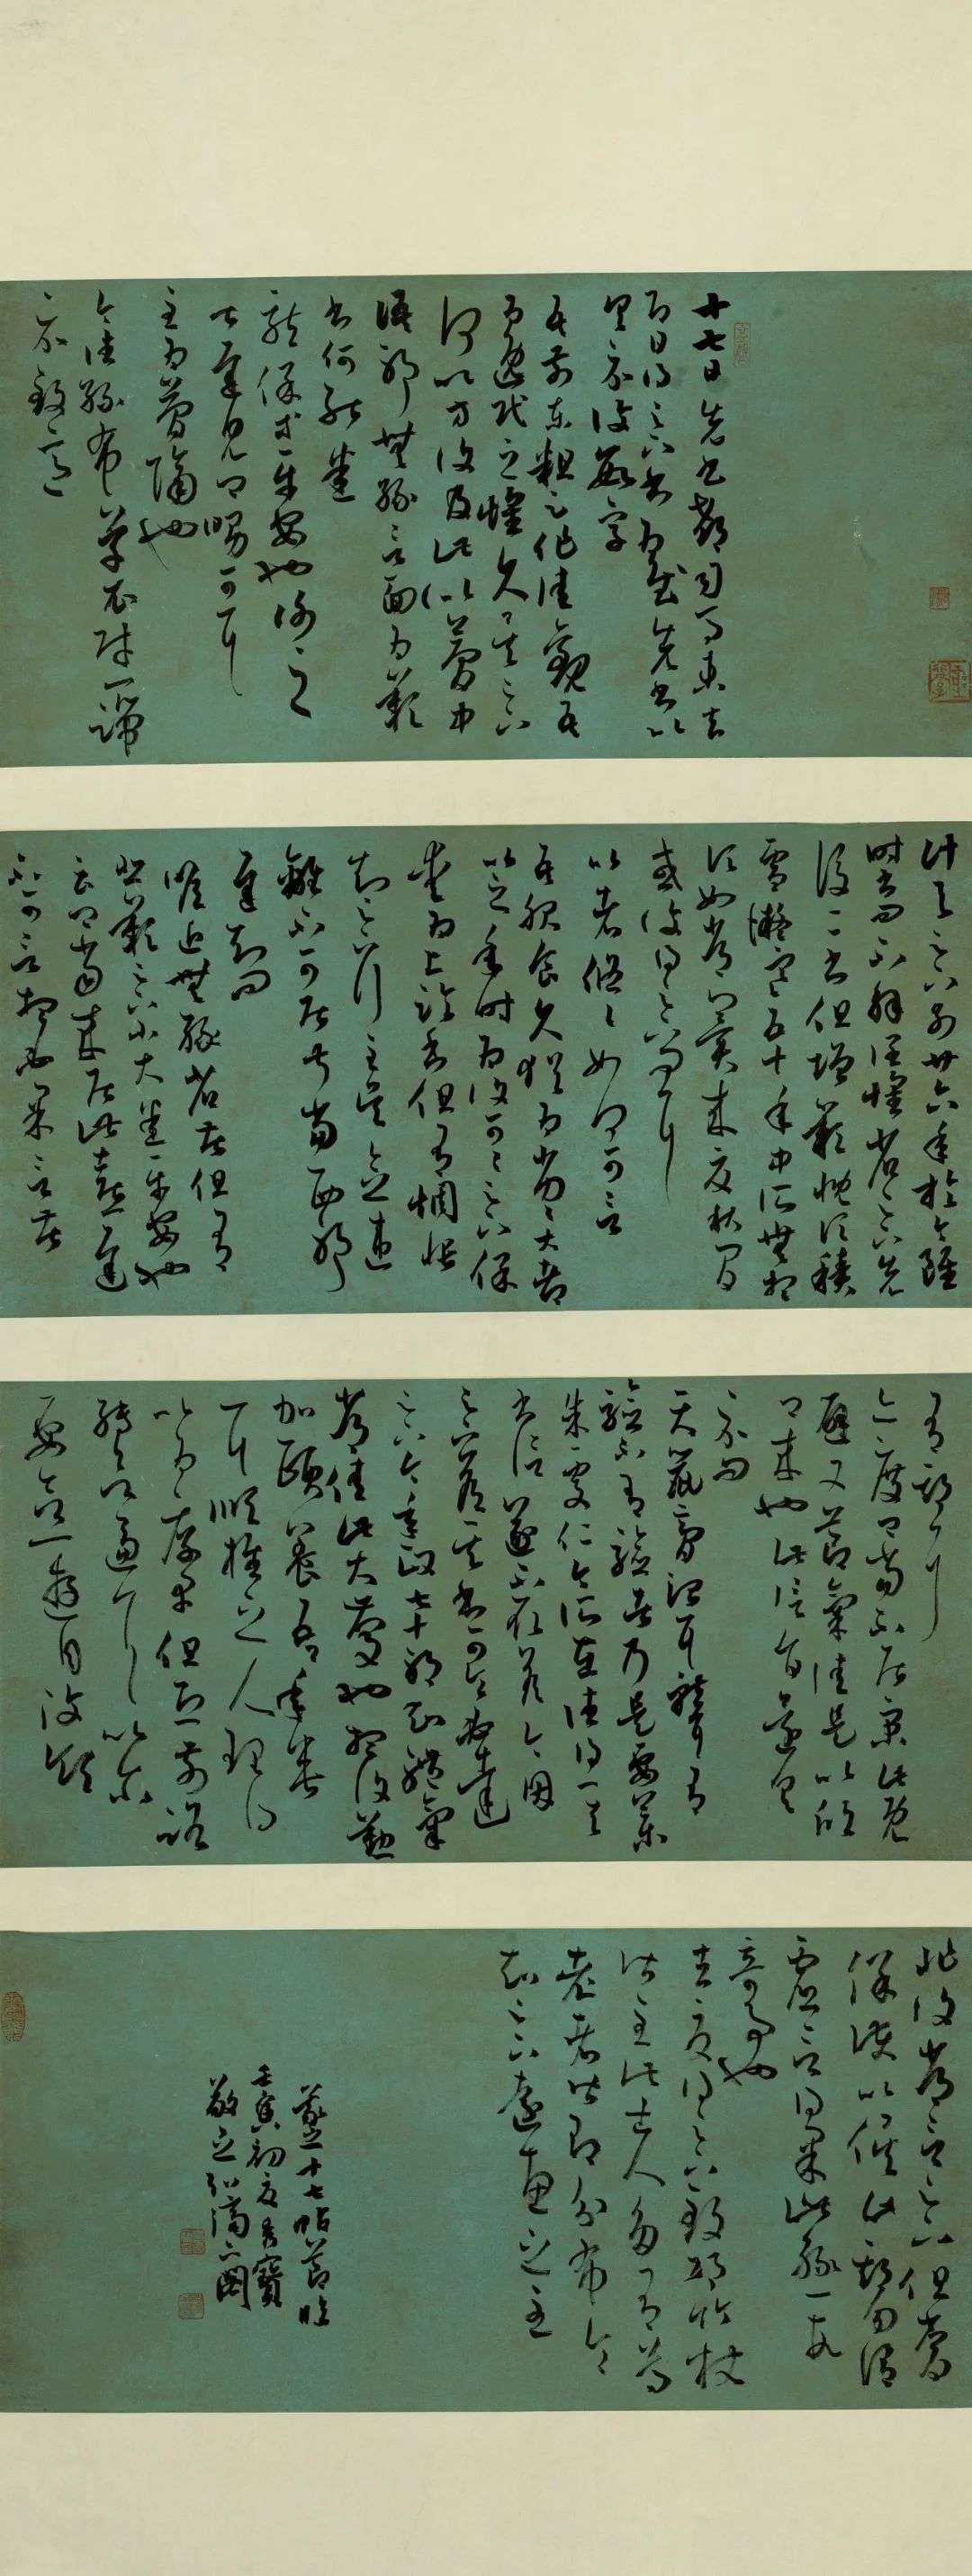 十七日先書郗司馬未去
即日得足下書為慰先書以
具示復數字
吾前東粗足作佳觀吾
為逸民之懷久矣足下
何以方復及此似夢中
語耶無緣言面為歎
書何能悉
龍保等平安也謝之
甚遲見卿舅可耳
至為簡隔也
今往絲布單衣財一端
示致意
計與足下別廿六年於今雖
時書問不解闊懷省足下先
後二書但增歎慨頃積
雪凝寒五十年中所無想
頃如常冀來夏秋間
或復得足下問耳
比者悠悠如何可言
吾服食久猶為劣劣大都
比之年時為復可可足下保
愛為上臨書但有惆悵
知足下行至吳念違
離不可居叔當西耶
遲知問
瞻近無緣省苦但有
悲歎足下小大悉平安也
云卿當來居此喜遲
不可言想必果言苦
有期耳
亦度卿當不居京此既
避又節氣佳是以欣
卿來也此信旨還具
示問
天鼠膏治耳聾有
驗不有驗者乃是要藥
朱處仁今所在往得其
書信遂不取答今因
足下答其書可令必達
足下今年政七十耶知體氣
常佳此大慶也想復勤
加頤養吾年垂
耳順推之人理得
以為厚幸但恐前路
轉欲逼耳以爾
要欲一遊目汶領
非復常言足下但當
保護以俟此期勿謂
虛言得果此緣一段
奇事也
去夏得足下致邛竹杖
皆至此士人多有尊
老者皆即分布令
知足下遠惠之至
十七帖節臨
壬寅初夏